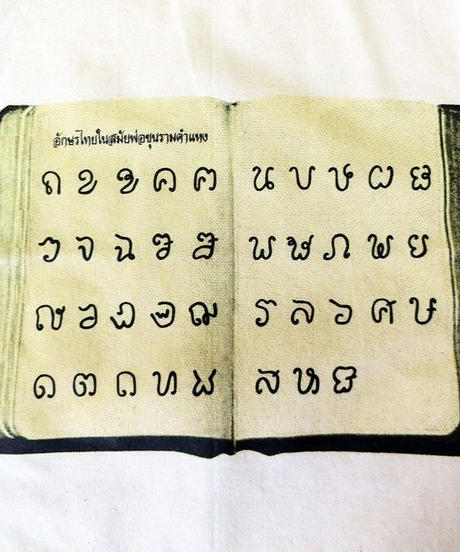 อักษรไทยในสมัยพ่อขุนรามคำแหง
ก ข ฃ ค ฅ
ง จ ฉ ช ซ
ญ ฎ ฏ ฐ ณ
ด ต ถ ท ธ
น บ ป ผ ฝ
พ ฟ ภ ม ย
ร ล ว ศ ษ
ส ห อ